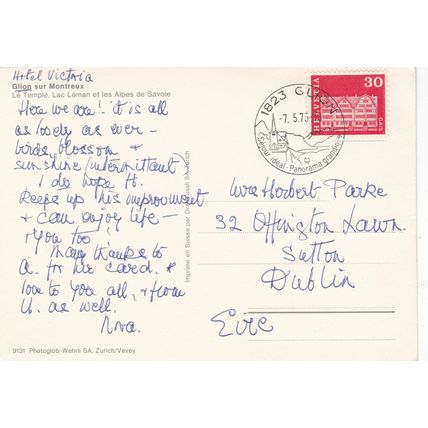 Hotel Victoria
Glion sur Montreux
Le Temple, Lac Léman et les Alpes de Savoie
Here we are! it is all
as lovely as ever –
birds, blossom &
sunshine (intermittent)
I do hope H.
keeps up this improvement
& can enjoy life –
& you too!
Many thanks to
A. for her card. &
love to you all, & from
U. as well.
Nora.
9131 Photoglob-Wehrli SA, Zurich/Vevey
Imprimé en Suisse par
1823 GLION
-7. 5.73
Séjour idéal - Panorama grandiose
HELVETIA
30
GAIS
Mrs Herbert-Parke
32 Offington Lawn.
Sutton
Dublin
Eire